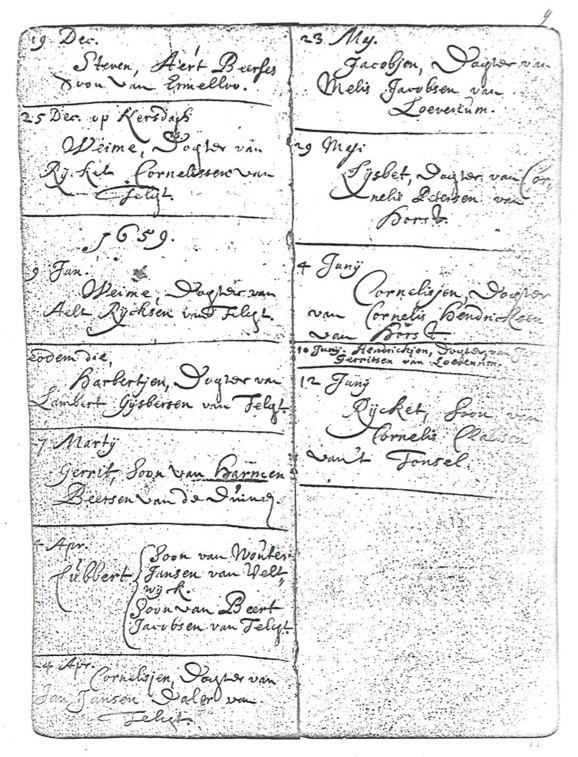 19 Dec.
Steven, Aert Beerses
Soon van Ermelloo.
25 Dec. op Kersdach
Weime, Dogter van
Rycket Cornelissen van
Telgt.
1659.
9 Jan.
Weime, Dogter van
Aelt Rycksen van Telgt.
eodem die,
Harbertjen, Dogter van
Lambert Gysbersen van Telgt
7 Martij
Gerrit, Soon van Harmen
Beersen van de Duinen.
Apr.
Lubbert
Soon van Wouter
Jansen van Velt,,
wijck.
Soon van Beert
Jacobsen van Telgt.
Apr.
Cornelisjen, Dogter van
Jan Jansen Daler van
Telgt.
9
23 Maj.
Jacobjen, Dogter van
Melis Jacobsen van
Loevenum.
29 Maji
Lysbet, Dogter van Cor,
nelis Petersen van
Horst.
4 Junij
Cornelisjen, Dogter
van Cornelis Hendricksen
van Horst
10 Junij. Hendrickjen, Dogter van
Gerritsen van Loevenum.
12 Junij
Rycket, Soon van
Cornelis Claessen
van't Tonsel.